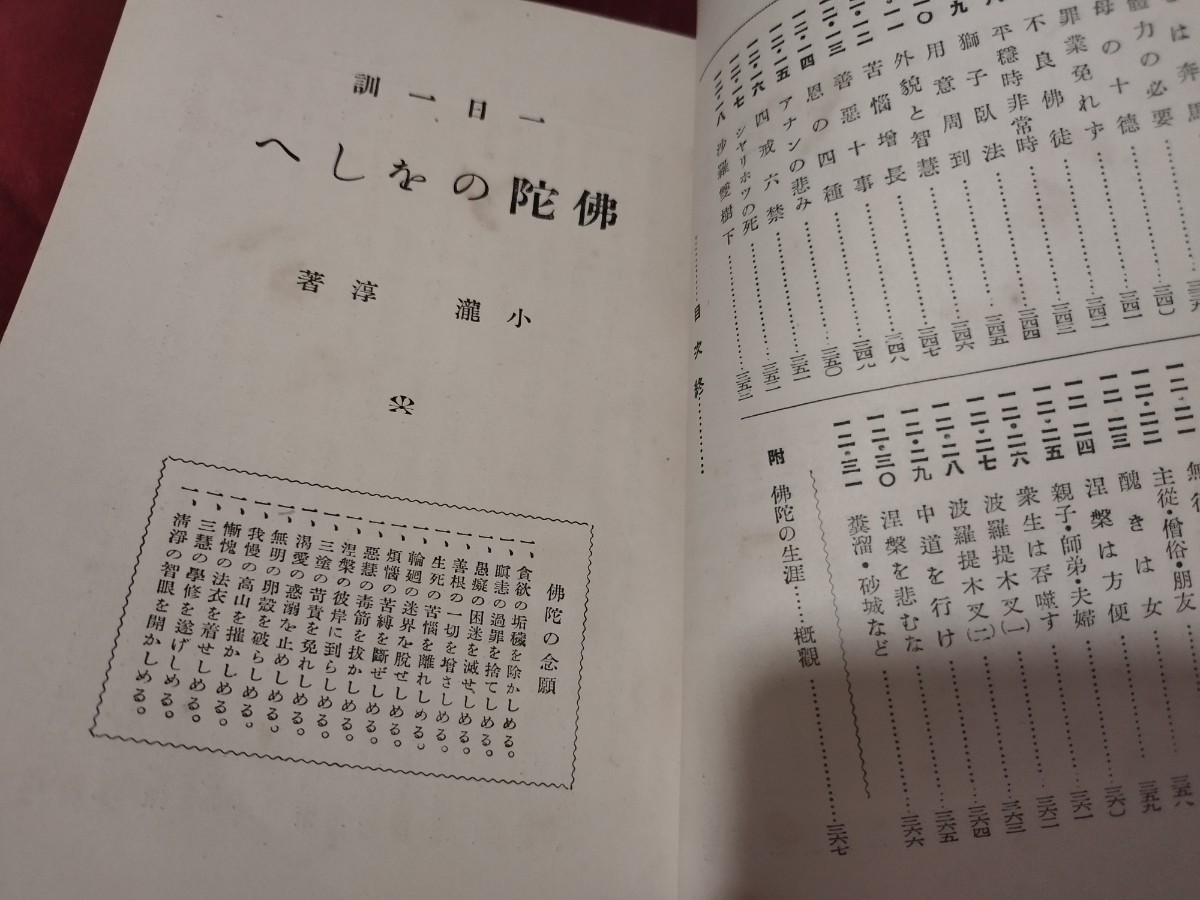 は奔馬
體力の必要……三三九
母の十德……三四〇
罪業免れず……三四一
不良佛徒……三四二
平穩時非常時……三四三
九 獅子臥法……三四四
一〇 用意周到……三四五
一一 外貌と智慧……三四六
一二・一二 苦惱增長……三四七
一二・一三 善惡十事……三四八
一二・一四 恩の四種……三四九
一二・一五 アナンの悲み……三五〇
一二・一六 四戒六禁……三五一
一二・一七 シヤリホツの死……三五二
一二・一八 沙羅雙樹下……三五三
一二・二一
一二・二二 主從・僧俗・朋友
一二・二三 醜きは女……三五八
一二・二四 涅槃は方便……三五九
一二・二五 親子・師弟・夫婦……三六〇
一二・二六 衆生は吞噬す……三六一
一二・二七 波羅提木叉(一)……三六二
一二・二八 波羅提木叉(二)……三六三
一二・二九 中道を行け……三六四
一二・三〇 涅槃を悲むな……三六五
一二・三一 糞溜・砂城など……三六六
附 佛陀の生涯……概觀……三六七
………目次終………
一日一訓
佛陀のをしへ
小瀧 淳 著
佛陀の念願
一、貪欲の垢穢を除かしめる。
一、瞋恚の過罪を捨てしめる。
一、愚癡の困迷を滅せしめる。
一、善根の一切を增さしめる。
一、生死の苦惱を離れしめる。
一、輪廻の迷界を脫せしめる。
一、煩惱の苦縛を斷ぜしめる。
一、惡慧の毒箭を拔かしめる。
一、涅槃の彼岸に到らしめる。
一、三塗の苛責を免れしめる。
一、渴愛の惑溺を止めしめる。
一、無明の卵殼を破らしめる。
一、我慢の高山を摧かしめる。
一、慚愧の法衣を着せしめる。
一、三慧の學修を遂げしめる。
一、淸淨の智眼を開かしめる。